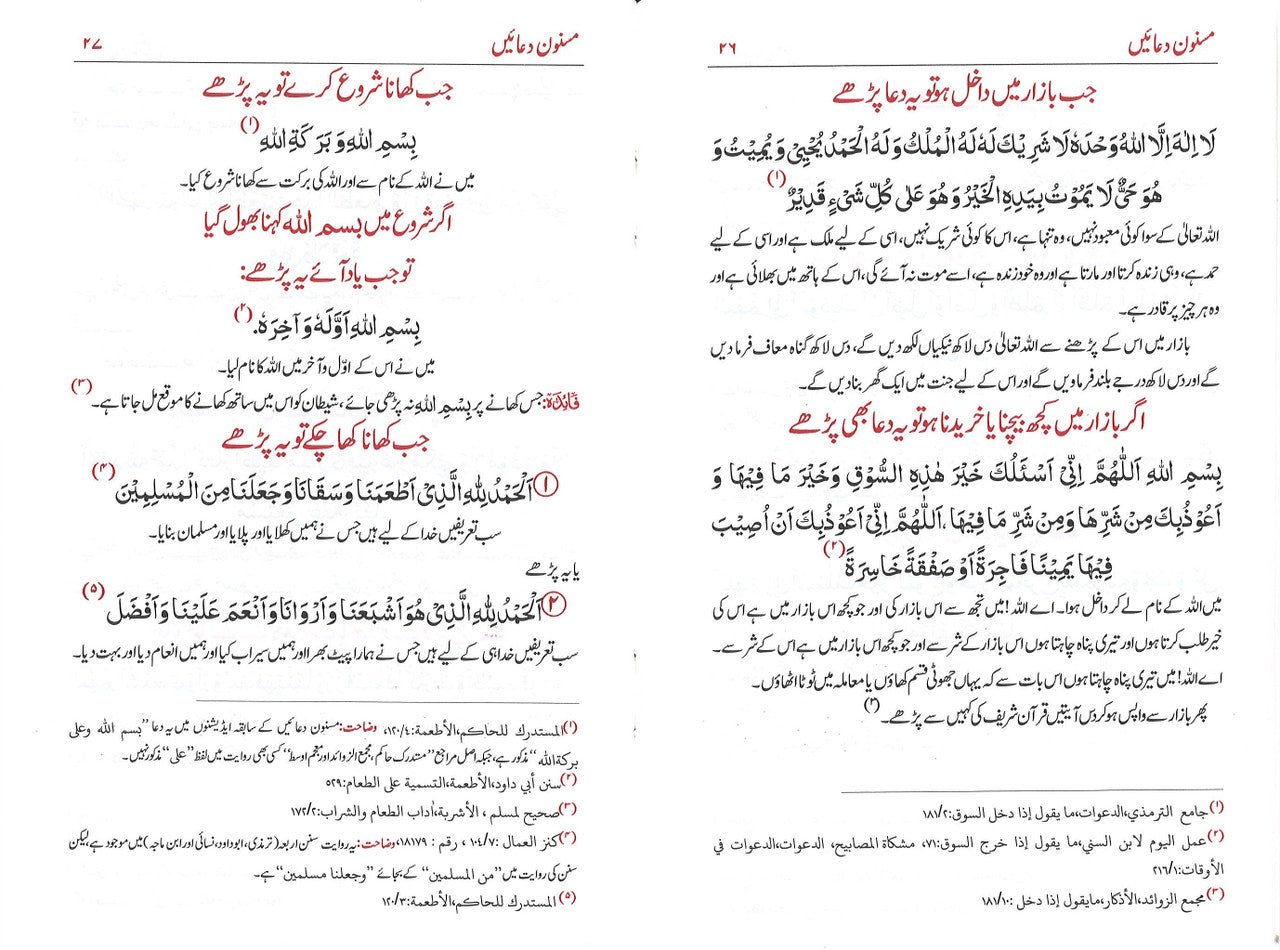 مسنون دعائیں ۲۶
جب بازار میں داخل ہو تو یہ دعا پڑھے
لَا اِلٰهَ اِلَّا اللهُ وَحْدَهٗ لَا شَرِيْكَ لَهٗ لَهُ الْمُلْكُ وَلَهُ الْحَمْدُ يُحْيِىْ وَيُمِيْتُ وَ
هُوَ حَىٌّ لَا يَمُوْتُ بِيَدِهِ الْخَيْرُ وَهُوَ عَلٰى كُلِّ شَىْءٍ قَدِيْرٌ (۱)
اللہ تعالیٰ کے سوا کوئی معبود نہیں، وہ تنہا ہے، اس کا کوئی شریک نہیں، اسی کے لیے ملک ہے اور اسی کے لیے
حمد ہے، وہی زندہ کرتا اور مارتا ہے اور وہ خود زندہ ہے، اسے موت نہ آئے گی، اس کے ہاتھ میں بھلائی ہے اور
وہ ہر چیز پر قادر ہے۔
بازار میں اس کے پڑھنے سے اللہ تعالیٰ دس لاکھ نیکیاں لکھ دیں گے، دس لاکھ گناہ معاف فرما دیں
گے اور دس لاکھ درجے بلند فرماویں گے اور اس کے لیے جنت میں ایک گھر بنادیں گے۔
اگر بازار میں کچھ بیچنا یا خریدنا ہو تو یہ دعا بھی پڑھے
بِسْمِ اللهِ اَللّٰهُمَّ اِنِّىْ اَسْئَلُكَ خَيْرَ هٰذِهِ السُّوْقِ وَخَيْرَ مَا فِيْهَا وَ
اَعُوْذُبِكَ مِنْ شَرِّهَا وَمِنْ شَرِّ مَا فِيْهَا، اَللّٰهُمَّ اِنِّىْ اَعُوْذُبِكَ اَنْ اُصِيْبَ
فِيْهَا يَمِيْنًا فَاجِرَةً اَوْ صَفْقَةً خَاسِرَةً (۲)
میں اللہ کے نام لے کر داخل ہوا۔ اے اللہ! میں تجھ سے اس بازار کی اور جو کچھ اس بازار میں ہے اس کی
خیر طلب کرتا ہوں اور تیری پناہ چاہتا ہوں اس بازار کے شر سے اور جو کچھ اس بازار میں ہے اس کے شر سے۔
اے اللہ! میں تیری پناہ چاہتا ہوں اس بات سے کہ یہاں جھوٹی قسم کھاؤں یا معاملہ میں ٹوٹا اٹھاؤں۔
پھر بازار سے واپس ہو کر دس آیتیں قرآن شریف کی کہیں سے پڑھے۔ (۳)
(۱) جامع الترمذي،الدعوات،ما يقول إذا دخل السوق:۱۸۱/۲
(۲) عمل اليوم لابن السني،ما يقول إذا خرج السوق:۷۱، مشكاة المصابيح، الدعوات،الدعوات في
الأوقات:۲۱۶/۱
(۳) مجمع الزوائد،الأذكار،مايقول إذا دخل :۱۸۱/۱۰
مسنون دعائیں ۲۷
جب کھانا شروع کرے تو یہ پڑھے
بِسْمِ اللهِ وَ بَرَكَةِ اللهِ (۱)
میں نے اللہ کے نام سے اور اللہ کی برکت سے کھانا شروع کیا۔
اگر شروع میں بسم اللہ کہنا بھول گیا
تو جب یاد آئے یہ پڑھے:
بِسْمِ اللهِ اَوَّلَهٗ وَ آخِرَهٗ. (۲)
میں نے اس کے اوّل و آخر میں اللہ کا نام لیا۔
فائدہ: جس کھانے پر بِسْمِ اللهِ نہ پڑھی جائے، شیطان کو اس میں ساتھ کھانے کا موقع مل جاتا ہے۔ (۳)
جب کھانا کھا چکے تو یہ پڑھے
۱ اَلْحَمْدُ لِلّٰهِ الَّذِىْ اَطْعَمَنَا وَسَقَانَا وَجَعَلَنَا مِنَ الْمُسْلِمِيْنَ (۴)
سب تعریفیں خدا کے لیے ہیں جس نے ہمیں کھلایا اور پلایا اور مسلمان بنایا۔
یا یہ پڑھے
۲ اَلْحَمْدُ لِلّٰهِ الَّذِىْ هُوَ اَشْبَعَنَا وَاَرْوَانَا وَاَنْعَمَ عَلَيْنَا وَاَفْضَلَ (۵)
سب تعریفیں خدا ہی کے لیے ہیں جس نے ہمارا پیٹ بھرا اور ہمیں سیراب کیا اور ہمیں انعام دیا اور بہت دیا۔
(۱) المستدرك للحاكم،الأطعمة:۱۲۰/۴، وضاحت: مسنون دعائیں کے سابقہ ایڈیشنوں میں یہ دعا “بسم الله وعلى
بركة الله” مذکور ہے، جبکہ اصل مراجع “مستدرک حاکم، مجمع الزوائد اور معجم اوسط” کسی بھی روایت میں لفظ “علی” مذکور نہیں۔
(۲) سنن أبي داود،الأطعمة،التسمية على الطعام:۵۲۹
(۳) صحيح لمسلم ، الأشربة،أداب الطعام والشراب:۱۷۲/۲
(۴) كنز العمال :۱۰۴/۷ ، رقم : ۱۸۱۷۹، وضاحت: یہ روایت سنن اربعہ (ترمذی، ابوداود، نسائی اور ابن ماجہ) میں موجود ہے، لیکن
سنن کی روایت میں “من المسلمين” کے بجائے “وجعلنا مسلمين” ہے۔
(۵) المستدرك للحاكم،الأطعمة:۱۲۰/۳